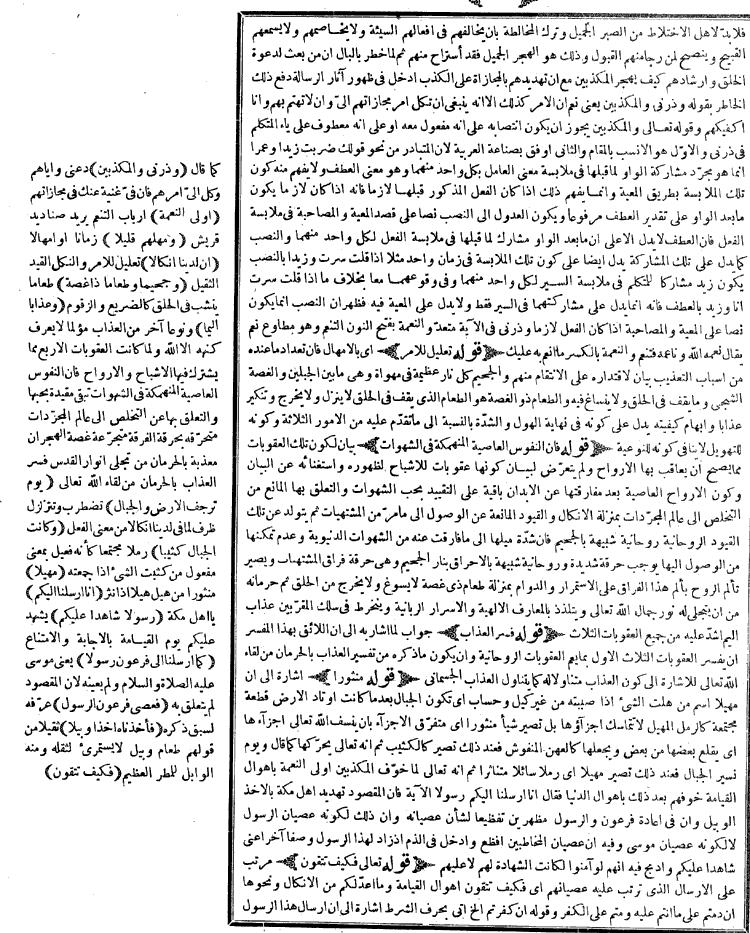 فلابد لاهل الاختلاط من الصبر الجميل وترك المخالطة بان يخالفهم فى افعالهم السيئة ولا يخاصمهم ولا يسمعهم
القبيح وينصح لمن رجا منهم القبول وذلك هو الهجر الجميل فقد استراح منهم ثم لما خطر بالبال ان من بعث لدعوة
الخلق وارشادهم كيف يهجر المكذبين مع ان تهديدهم بالمجازاة على الكذب ادخل فى ظهور آثار الرسالة دفع ذلك
الخاطر بقوله وذرنى والمكذبين يعنى نعم ان الامر كذلك الا انه ينبغى ان تكل امر مجازاتهم الىّ وان لا تهتم بهم وانا
اكفيكهم وقوله تعالى والمكذبين يجوز ان يكون انتصابه على انه مفعول معه او على انه معطوف على ياء المتكلم
فى ذرنى والاوّل هو الانسب بالمقام والثانى اوفق بصناعة العربية لان المتبادر من نحو قولك ضربت زيدا وعمرا
انما هو مجرّد مشاركة الواو لما قبلها فى ملابسة معنى العامل بكل واحد منهما وهو معنى العطف ولا يفهم منه كون
تلك الملابسة بطريق المعية وانما يفهم ذلك اذا كان الفعل المذكور قبلها لازما فانه اذا كان لازما يكون
ما بعد الواو على تقدير العطف مرفوعا ويكون العدول الى النصب نصا على قصد المعية والمصاحبة فى ملابسة
الفعل فان العطف لا يدل الا على ان ما بعد الواو مشارك لما قبلها فى ملابسة الفعل لكل واحد منهما والنصب
كما يدل على تلك المشاركة يدل ايضا على كون تلك الملابسة فى زمان واحد مثلا اذا قلت سرت وزيدا بالنصب
يكون زيد مشاركا للمتكلم فى ملابسة السير لكل واحد منهما وفى وقوعهما معا بخلاف ما اذا قلت سرت
انا وزيد بالعطف فانه انما يدل على مشاركتهما فى السير فقط ولا يدل على المعية فيه فظهر ان النصب انما يكون
نصا على المعية والمصاحبة اذا كان الفعل لازما وذرنى فى الآية متعدّ والنعمة بفتح النون التنعم وهو مطاوع نعم
يقال نعمه الله وناعمه فتنعم والنعمة بالكسر ما انعم به عليك (قوله تعليل للامر) اى بالامهال فان تعداد ما عنده
من اسباب التعذيب بيان لاقتداره على الانتقام منهم والجحيم كل نار عظيمة فى مهواة وهى ما بين الجبلين والغصة
الشجى وما يقف فى الحلق ولا ينساغ فيه والطعام ذو الغصة هو الطعام الذى يقف فى الحلق لا ينزل ولا يخرج وتنكير
عذابا وابهام كيفيته يدل على كونه فى نهاية الهول والشدّة بالنسبة الى ما تقدّم عليه من الامور الثلاثة وكونه
للتهويل لا ينافى كونه للنوعية (قوله فان النفوس العاصية المنهمكة فى الشهوات) بيان لكون تلك العقوبات
مما يصح ان يعاقب بها الارواح ولم يتعرّض لبيان كونها عقوبات للاشباح لظهوره واستغنائه عن البيان
وكون الارواح العاصية بعد مفارقتها عن الابدان باقية على التقييد بحب الشهوات والتعلق بها المانع من
التخلص الى عالم المجرّدات بمنزلة الانكال والقيود المانعة عن الوصول الى ما مرّ من المشتهيات ثم يتولد عن تلك
القيود الروحانية روحانية شبيهة بالجحيم فان شدّة ميلها الى ما فارقت عنه من الشهوات الدنيوية وعدم تمكنها
من الوصول اليها يوجب حرقة شديدة وروحانية شبيهة بالاحراق بنار الجحيم وهى حرقة فراق المشتهيات ويصير
تألم الروح بألم هذا الفراق على الاستمرار والدوام بمنزلة طعام ذى غصة لا يسوغ ولا يخرج من الحلق ثم حرمانه
من ان يتجلى له نور جمال الله تعالى ويتلذذ بالمعارف الالهية والاسرار الربانية وينخرط فى سلك المقرّبين عذاب
اليم اشدّ عليه من جميع العقوبات الثلاث (قوله فسر العذاب) جواب لما اشار به الى ان اللائق بهذا المفسر
ان يفسر العقوبات الثلاث الاول بما يعم العقوبات الروحانية وان يكون ما ذكره من تفسير العذاب بالحرمان من لقاء
الله تعالى للاشارة الى كون العذاب متناولا له كما يتناول العذاب الجسمانى (قوله منثورا) اشارة الى ان
مهيلا اسم من هلت الشئ اذا صببته من غير كيل وحساب اى تكون الجبال بعد ما كانت اوتاد الارض قطعة
مجتمعة كالرمل المهيل لا تتماسك اجزاؤها بل تصير شيأ منثورا اى متفرق الاجزآء بان ينسف الله تعالى اجزآءها
اى يقلع بعضها من بعض ويجعلها كالعهن المنفوش فعند ذلك تصير كالكثيب ثم انه تعالى يحرّكها كما قال ويوم
نسير الجبال فعند ذلك تصير مهيلا اى رملا سائلا متناثرا ثم انه تعالى لما خوّف المكذبين اولى النعمة باهوال
القيامة خوفهم بعد ذلك باهوال الدنيا فقال انا ارسلنا اليكم رسولا الآية فان المقصود تهديد اهل مكة بالاخذ
الوبيل وان فى اعادة فرعون والرسول مظهرين تفظيعا لشأن عصيانه وان ذلك لكونه عصيان الرسول
لا لكونه عصيان موسى وفيه ان عصيان المخاطبين افظع وادخل فى الذم اذ زاد لهذا الرسول وصفا آخر اعنى
شاهدا عليكم وادمج فيه انهم لو آمنوا لكانت الشهادة لهم لا عليهم (قوله تعالى فكيف تتقون) مرتب
على الارسال الذى ترتب عليه عصيانهم اى فكيف تتقون اهوال القيامة وما اعدّ لكم من الانكال ونحوها
ان دمتم على ما انتم عليه ومتم على الكفر وقوله ان كفرتم الخ اتى بحرف الشرط اشارة الى ان ارسال هذا الرسول
كما قال (وذرنى والمكذبين) دعنى واياهم
وكل الىّ امرهم فان فىّ غنية عنك فى مجازاتهم
(اولى النعمة) ارباب التنعم يريد صناديد
قريش (ومهلهم قليلا) زمانا او امهالا
(ان لدينا انكالا) تعليل للامر والنكل القيد
الثقيل (وجحيما وطعاما ذا غصة) طعاما
ينشب فى الحلق كالضريع والزقوم (وعذابا
اليما) ونوعا آخر من العذاب مؤلما لا يعرف
كنهه الا الله ولما كانت العقوبات الاربع مما
يشترك فيها الاشباح والارواح فان النفوس
العاصية المنهمكة فى الشهوات تبقى مقيدة بحبها
والتعلق بها عن التخلص الى عالم المجرّدات
متحرّقة بحرقة الفرقة متجرّعة غصة الهجران
معذبة بالحرمان من تجلى انوار القدس فسر
العذاب بالحرمان من لقاء الله تعالى (يوم
ترجف الارض والجبال) تضطرب وتتزلزل
ظرف لما فى لدينا انكالا من معنى الفعل (وكانت
الجبال كثيبا) رملا مجتمعا كأنه فعيل بمعنى
مفعول من كثبت الشئ اذا جمعته (مهيلا)
منثورا من هيل هيلا اذا نثر (انا ارسلنا اليكم)
يا اهل مكة (رسولا شاهدا عليكم) يشهد
عليكم يوم القيامة بالاجابة والامتناع
(كما ارسلنا الى فرعون رسولا) يعنى موسى
عليه الصلاة والسلام ولم يعينه لان المقصود
لم يتعلق به (فعصى فرعون الرسول) عرّفه
لسبق ذكره (فأخذناه اخذا وبيلا) ثقيلا من
قولهم طعام وبيل لا يستمرئ لثقله ومنه
الوابل للمطر العظيم (فكيف تتقون)